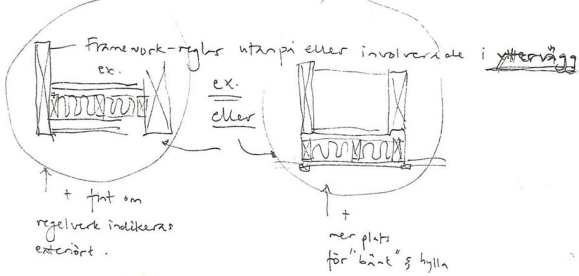 Framework-reglar utanpå eller involverade i yttervägg
ex.
ex.
eller
+ fint om
regelverk indikeras
exteriört.
+
mer plats
för "bänk" & hylla